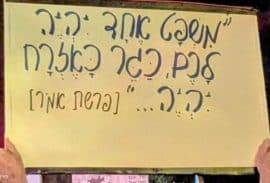 "מִשְׁפַּט אֶחָד יִהְיֶה
לָכֶם, כַּגֵּר כָּאֶזְרָח
יִהְיֶה..." [פרשת אמור]